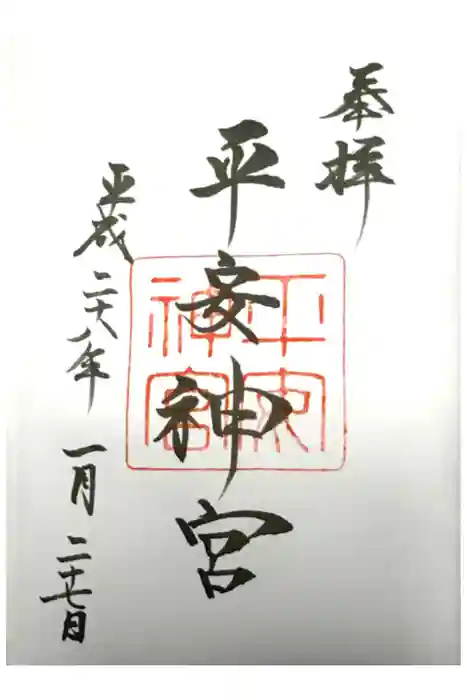 奉拝
平安神宮
平安神宮
平成二十八年一月二十七日